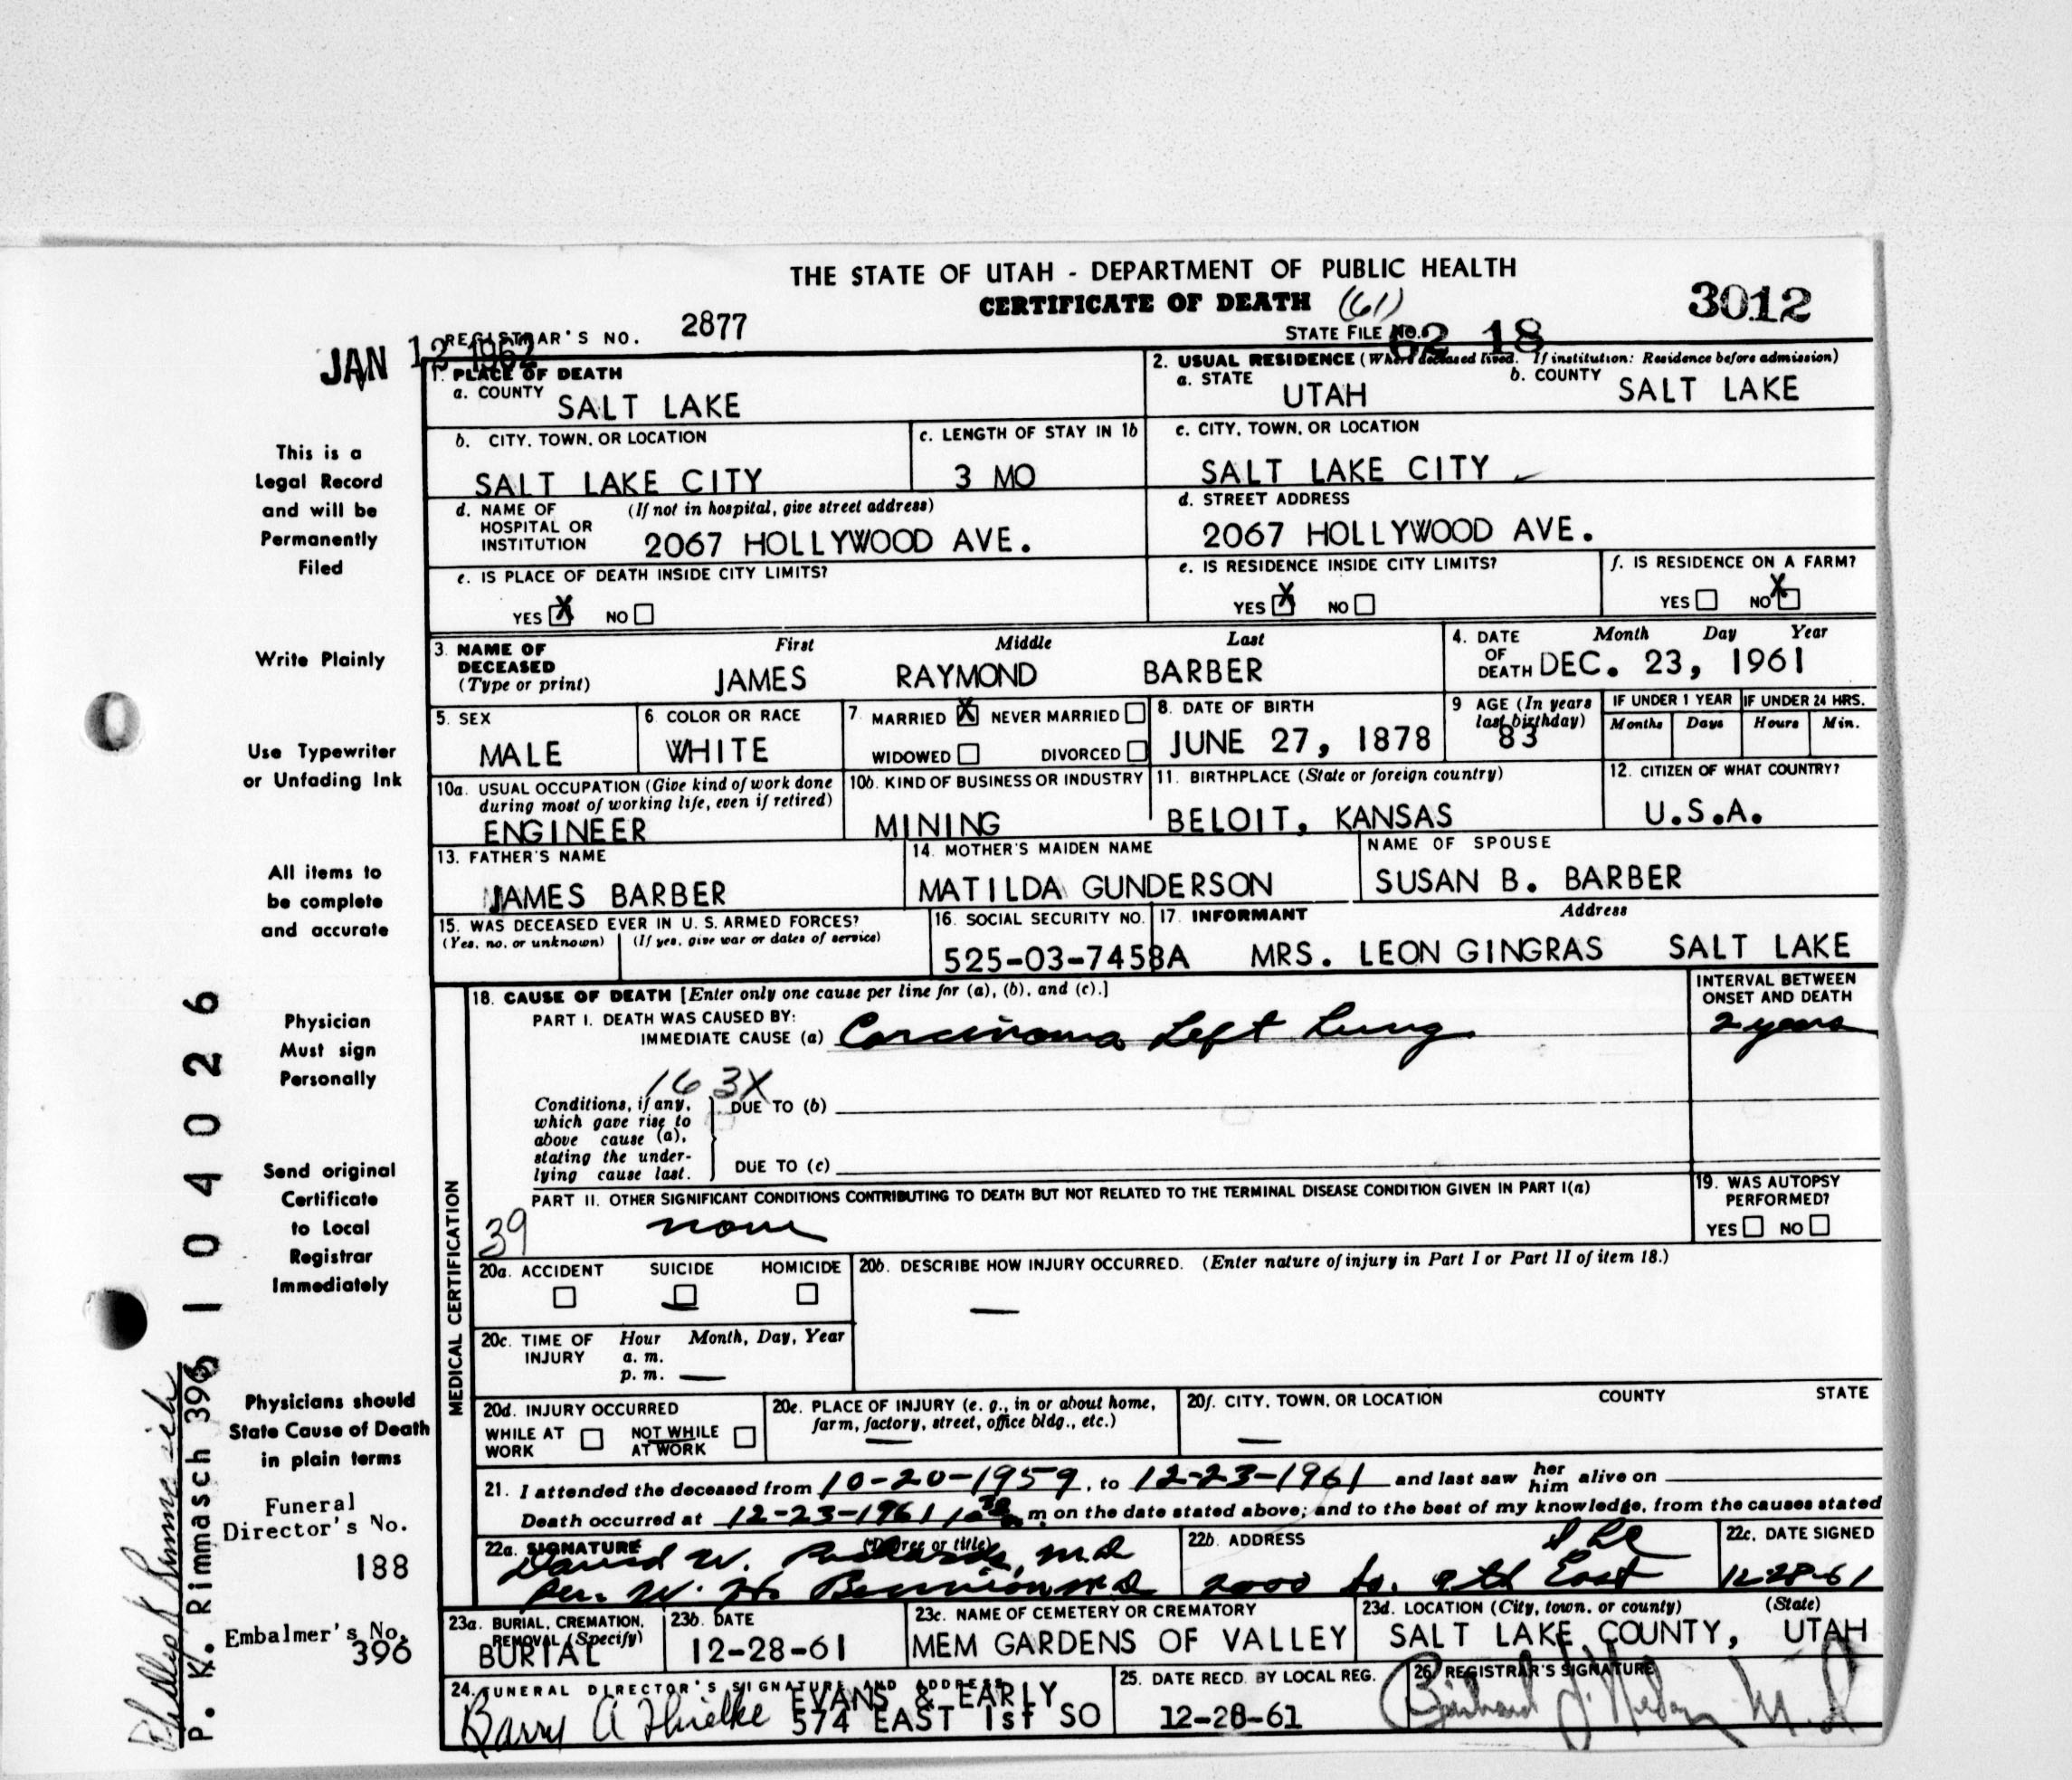 THE STATE OF UTAH - DEPARTMENT OF PUBLIC HEALTH
CERTIFICATE OF DEATH (61)
3012
REGISTRAR'S NO. 2877
STATE FILE NO. 62 18
JAN 12 1962
1. PLACE OF DEATH
a. COUNTY SALT LAKE
2. USUAL RESIDENCE (Where deceased lived. If institution: Residence before admission)
a. STATE UTAH b. COUNTY SALT LAKE
b. CITY, TOWN, OR LOCATION SALT LAKE CITY
c. LENGTH OF STAY IN 1b 3 MO
c. CITY, TOWN, OR LOCATION SALT LAKE CITY
d. NAME OF HOSPITAL OR INSTITUTION (If not in hospital, give street address) 2067 HOLLYWOOD AVE.
d. STREET ADDRESS 2067 HOLLYWOOD AVE.
e. IS PLACE OF DEATH INSIDE CITY LIMITS?
YES X NO
e. IS RESIDENCE INSIDE CITY LIMITS?
YES X NO
f. IS RESIDENCE ON A FARM?
YES NO X
3. NAME OF DECEASED (Type or print)
First Middle Last
JAMES RAYMOND BARBER
4. DATE OF DEATH Month Day Year
DEC. 23, 1961
5. SEX MALE
6. COLOR OR RACE WHITE
7. MARRIED X NEVER MARRIED
WIDOWED DIVORCED
8. DATE OF BIRTH JUNE 27, 1878
9 AGE (In years last birthday) 83
IF UNDER 1 YEAR Months Days
IF UNDER 24 HRS. Hours Min.
10a. USUAL OCCUPATION (Give kind of work done during most of working life, even if retired) ENGINEER
10b. KIND OF BUSINESS OR INDUSTRY MINING
11. BIRTHPLACE (State or foreign country) BELOIT, KANSAS
12. CITIZEN OF WHAT COUNTRY? U.S.A.
13. FATHER'S NAME JAMES BARBER
14. MOTHER'S MAIDEN NAME MATILDA GUNDERSON
NAME OF SPOUSE SUSAN B. BARBER
15. WAS DECEASED EVER IN U. S. ARMED FORCES?
(Yes, no, or unknown) (If yes, give war or dates of service)
16. SOCIAL SECURITY NO. 525-03-7458A
17. INFORMANT Address
MRS. LEON GINGRAS SALT LAKE
18. CAUSE OF DEATH [Enter only one cause per line for (a), (b), and (c).]
PART I. DEATH WAS CAUSED BY:
IMMEDIATE CAUSE (a) Carcinoma Left Lung
INTERVAL BETWEEN ONSET AND DEATH
2 years
163X
Conditions, if any, which gave rise to above cause (a), stating the underlying cause last.
DUE TO (b)
DUE TO (c)
PART II. OTHER SIGNIFICANT CONDITIONS CONTRIBUTING TO DEATH BUT NOT RELATED TO THE TERMINAL DISEASE CONDITION GIVEN IN PART I(a)
39 none
19. WAS AUTOPSY PERFORMED?
YES NO
MEDICAL CERTIFICATION
20a. ACCIDENT SUICIDE HOMICIDE
20b. DESCRIBE HOW INJURY OCCURRED. (Enter nature of injury in Part I or Part II of item 18.)
—
20c. TIME OF INJURY Hour Month, Day, Year
a. m.
p. m. —
20d. INJURY OCCURRED
WHILE AT WORK NOT WHILE AT WORK
20e. PLACE OF INJURY (e. g., in or about home, farm, factory, street, office bldg., etc.)
—
20f. CITY, TOWN, OR LOCATION COUNTY STATE
—
21. I attended the deceased from 10-20-1959, to 12-23-1961 and last saw her him alive on
Death occurred at 12-23-1961 m on the date stated above; and to the best of my knowledge, from the causes stated
22a. SIGNATURE (Degree or title)
David W. Richards, M.D.
per. W. H. Bennion M.D.
22b. ADDRESS
S L C
2000 So. 9th East
22c. DATE SIGNED
12-28-61
23a. BURIAL, CREMATION, REMOVAL (Specify) BURIAL
23b. DATE 12-28-61
23c. NAME OF CEMETERY OR CREMATORY MEM GARDENS OF VALLEY
23d. LOCATION (City, town, or county) (State)
SALT LAKE COUNTY, UTAH
24. FUNERAL DIRECTOR'S SIGNATURE AND ADDRESS
Barry A Thielke EVANS & EARLY
574 EAST 1st SO
25. DATE RECD. BY LOCAL REG. 12-28-61
26. REGISTRAR'S SIGNATURE
This is a
Legal Record
and will be
Permanently
Filed
Write Plainly
Use Typewriter
or Unfading Ink
All items to
be complete
and accurate
Physician
Must sign
Personally
Send original
Certificate
to Local
Registrar
Immediately
Physicians should
State Cause of Death
in plain terms
Funeral
Director's No.
188
Embalmer's No.
396
P. K. Rimmasch 396